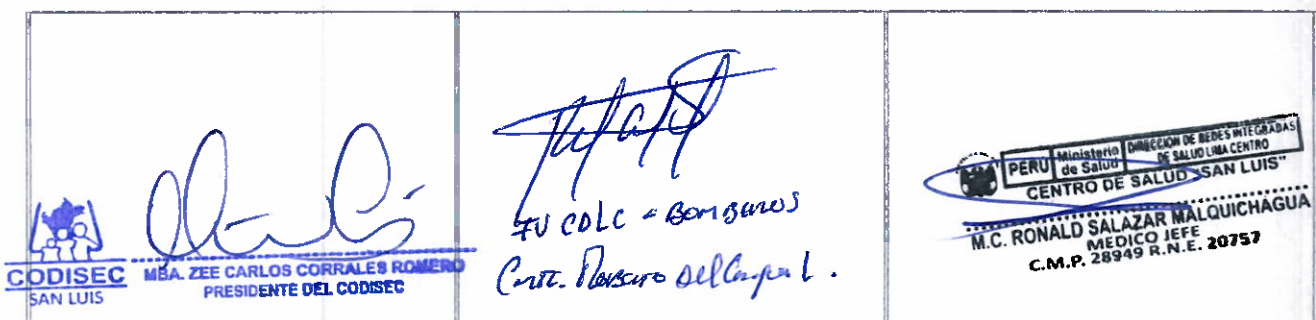 CODISEC
SAN LUIS
MBA. ZEE CARLOS CORRALES ROMERO
PRESIDENTE DEL CODISEC
IV CDLC - BOMBEROS
PERÚ
Ministerio
de Salud
DIRECCION DE REDES INTEGRADAS
DE SALUD LIMA CENTRO
CENTRO DE SALUD "SAN LUIS"
M.C. RONALD SALAZAR MALQUICHAGUA
MEDICO JEFE
C.M.P. 28949 R.N.E. 20757